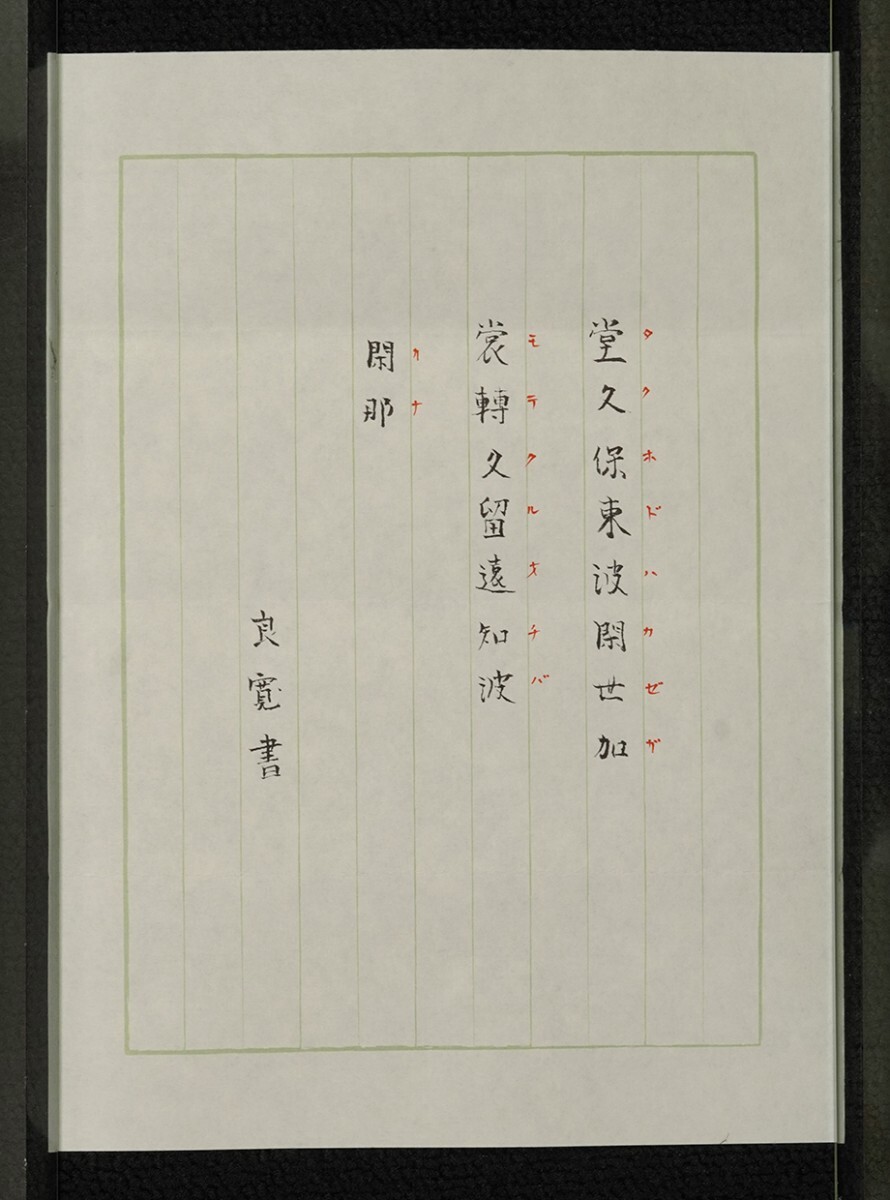 堂久保東波閑世加
タクホドハカゼガ
裳轉久留遠知波
モテクルオチバ
閑那
カナ
良寛書